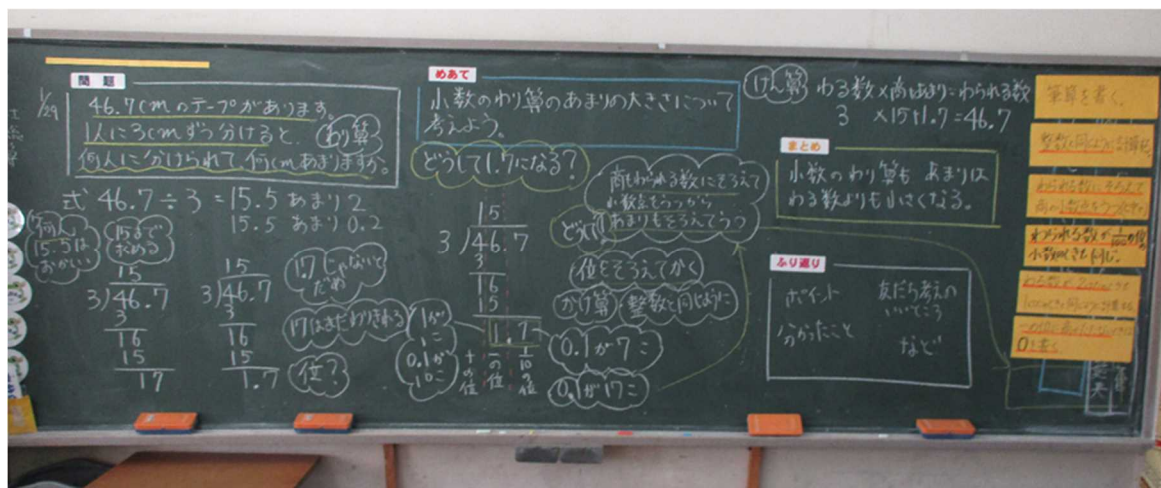 1/29
問題
46.7cmのテープがあります。
1人に3cmずつ分けると、
何人に分けられて、何cmあまりますか。
わり算
式 46.7÷3=15.5あまり2
15.5あまり0.2
何人
15.5は
おかしい
15まで
求める
15
3)46.7
3
16
15
17
15
3)46.7
3
16
15
1.7
1.7じゃないと
だめ
17はまだわりきれる
位?
めあて
小数のわり算のあまりの大きさについて
考えよう。
どうして1.7になる?
15
3)46.7
3
16
15
1.7
1が
1こ
0.1が
10こ
十の位
一の位
1/10の位
0.1が7こ
0.1が17こ
商もわられる数にそろえて
小数点をうつから
あまりもそろえてうつ
位をそろえてかく
かけ算 整数と同じように
けん算
わる数×商+あまり=わられる数
3 ×15+1.7=46.7
まとめ
小数のわり算も あまりは
わる数よりも小さくなる。
ふり返り
ポイント
分かったこと
友だち考えの
いいところ
など
筆算を書く。
整数と同じように計算する
わられる数にそろえて
商の小数点をうつ
わられる数が1/100の位
小数のときも同じ。
0を書く。